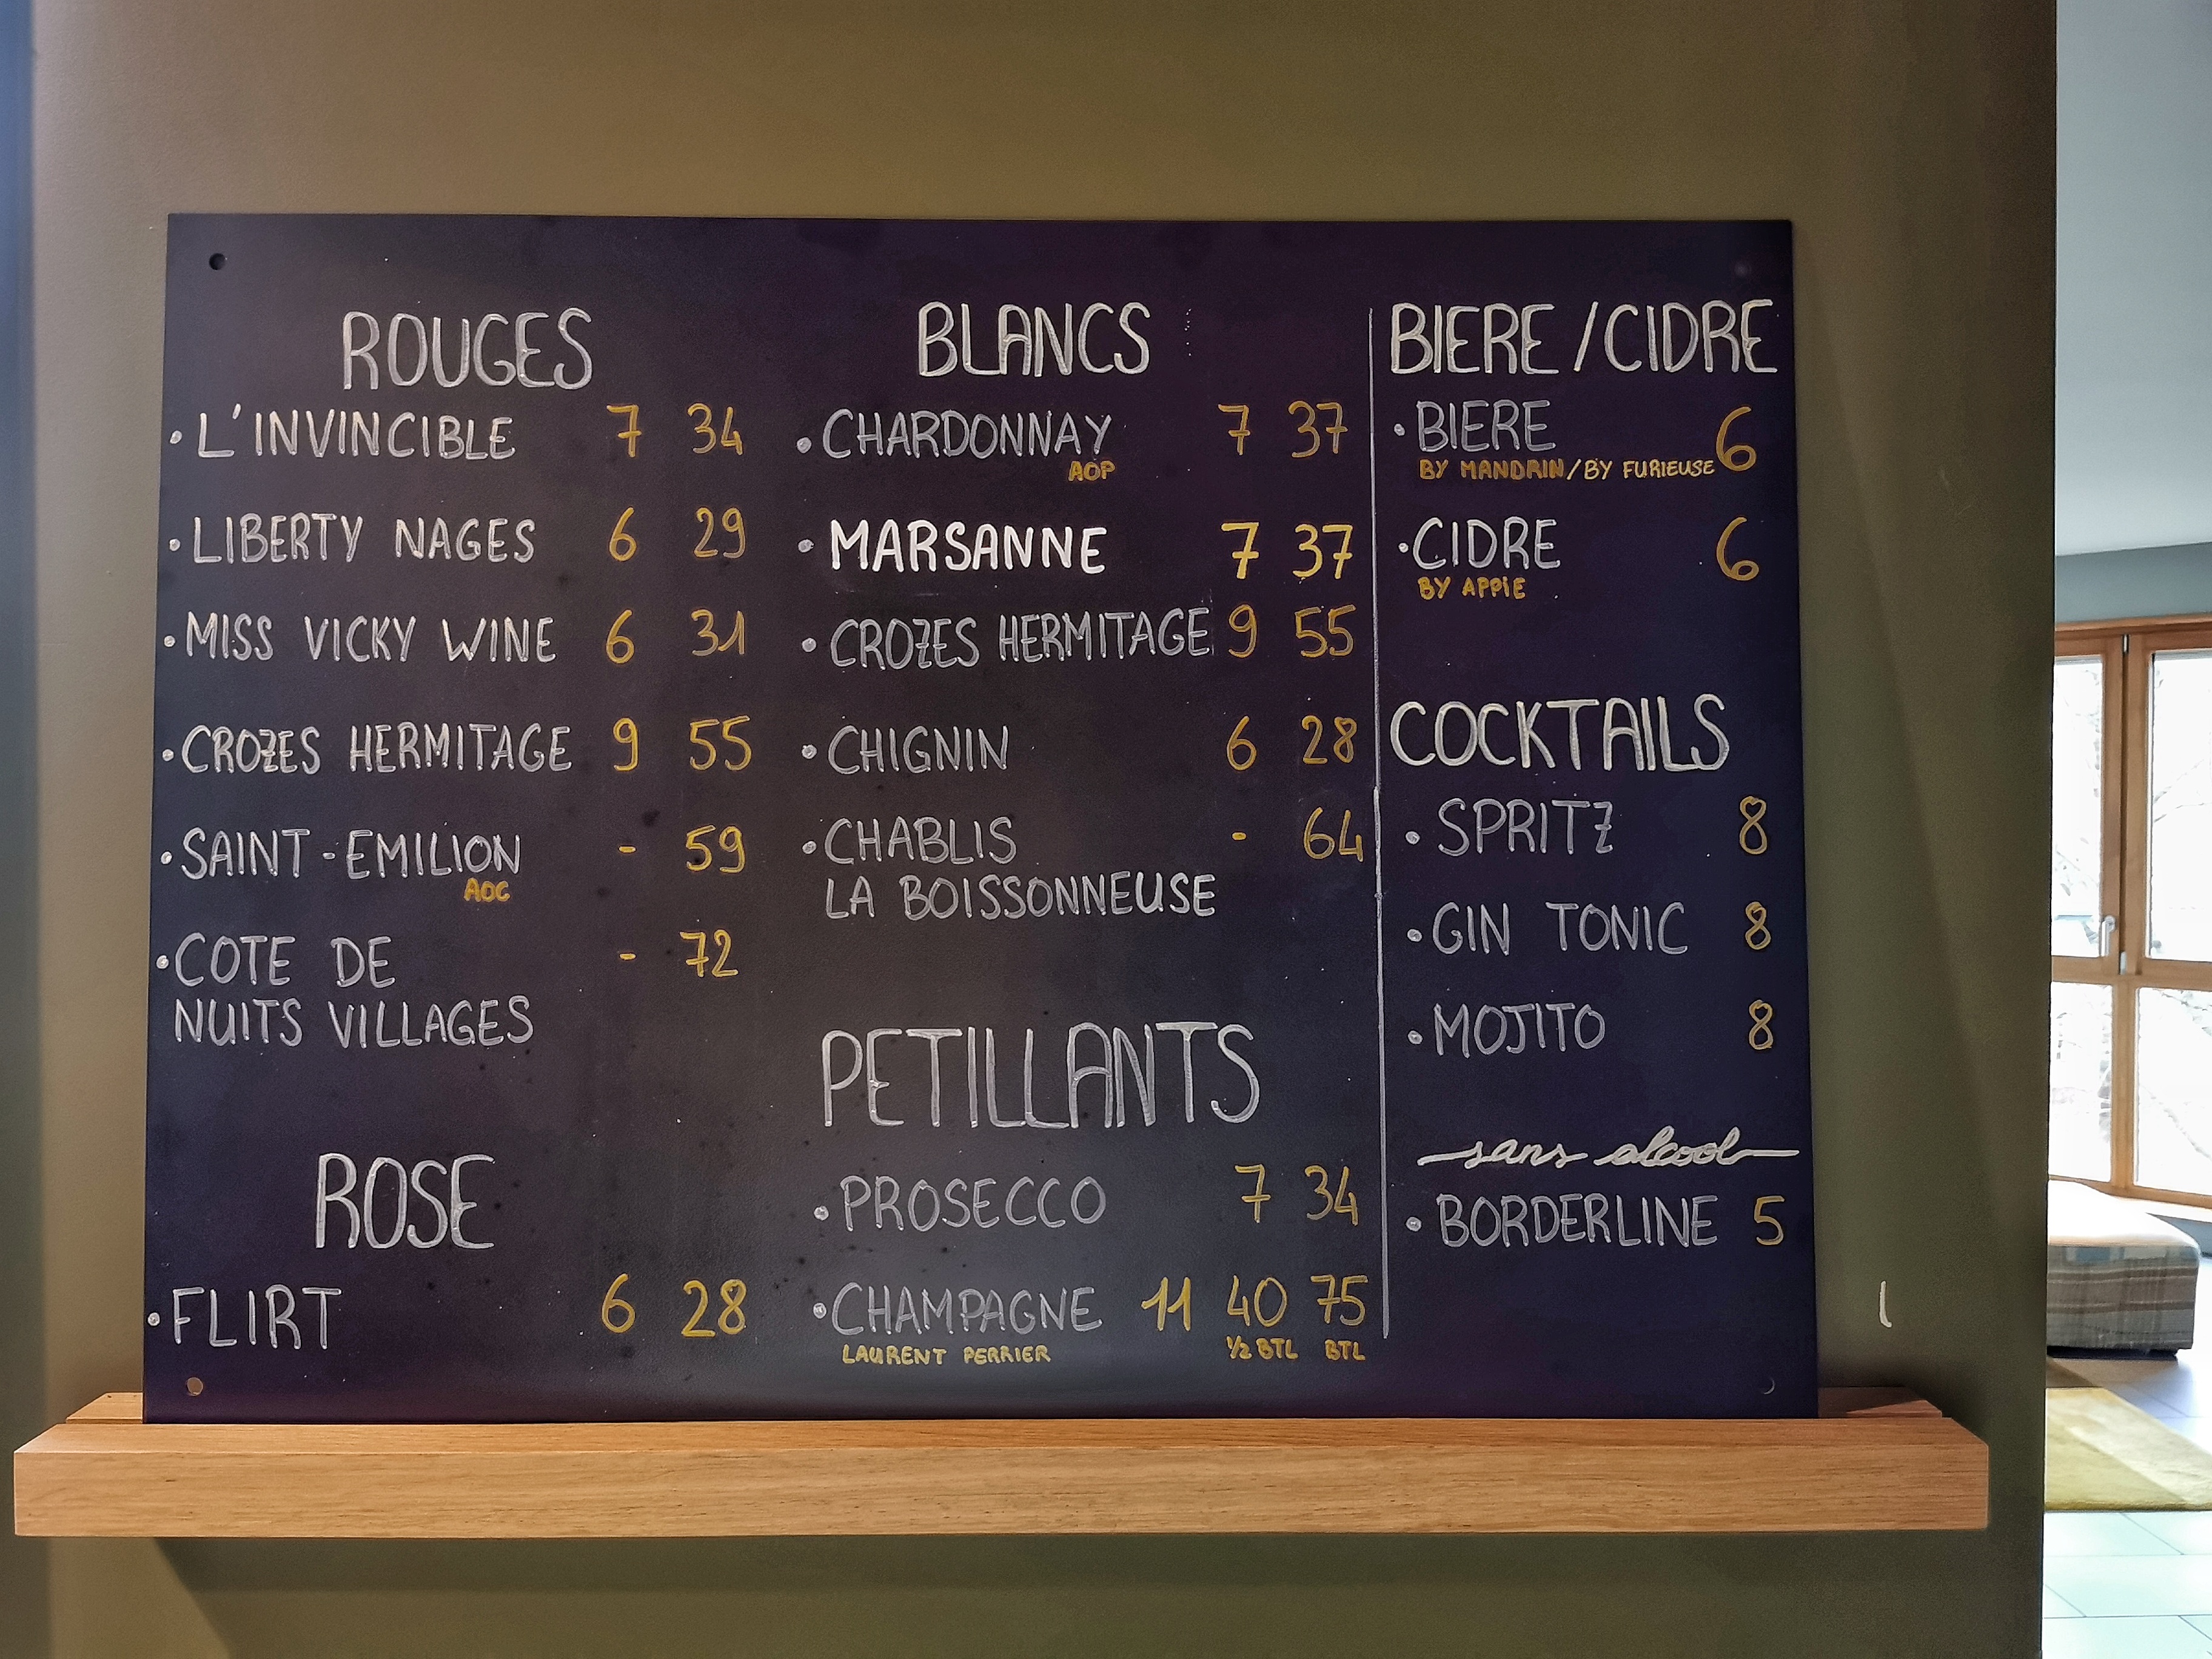 ROUGES
• L'INVINCIBLE 7 34
• LIBERTY NAGES 6 29
• MISS VICKY WINE 6 31
• CROZES HERMITAGE 9 55
• SAINT-EMILION - 59
AOC
• COTE DE - 72
NUITS VILLAGES
ROSE
• FLIRT 6 28
BLANCS
• CHARDONNAY 7 37
AOP
• MARSANNE 7 37
• CROZES HERMITAGE 9 55
• CHIGNIN 6 28
• CHABLIS - 64
LA BOISSONNEUSE
PETILLANTS
• PROSECCO 7 34
• CHAMPAGNE 11 40 75
LAURENT PERRIER 1/2 BTL BTL
BIERE/CIDRE
• BIERE 6
BY MANDRIN/BY FURIEUSE
• CIDRE 6
BY APPIE
COCKTAILS
• SPRITZ 8
• GIN TONIC 8
• MOJITO 8
sans alcool
• BORDERLINE 5